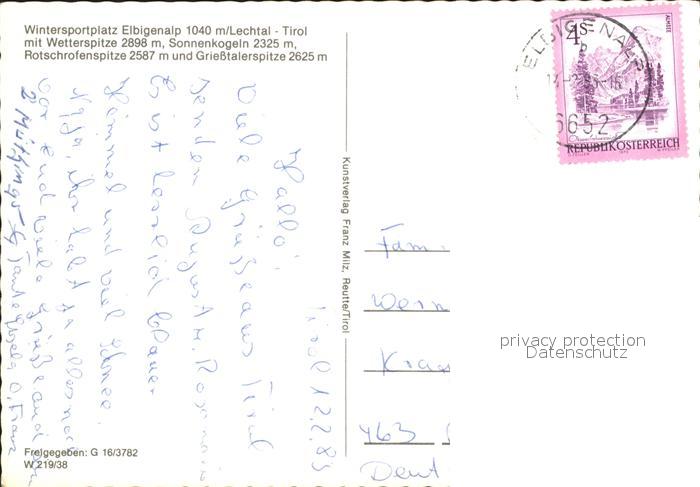 Wintersportplatz Elbigenalp 1040 m/Lechtal - Tirol
mit Wetterspitze 2898 m, Sonnenkogeln 2325 m,
Rotschrofenspitze 2587 m und Grießtalerspitze 2625 m
Tirol 12.2.85
Hallo!
Viele Grüße aus Tirol
senden August u.
Es ist herrlich blauer
Himmel und viel Schnee.
Naja, ihr habt ja alles noch
vor Euch viele Grüße auch
Freigegeben: G 16/3782
W 219/38
Kunstverlag Franz Milz, Reutte/Tirol
4S
ALMSEE
ELBIGENALP
6652
REPUBLIK ÖSTERREICH
Fam.
Wern
Kra
463
Deut
privacy protection
Datenschutz